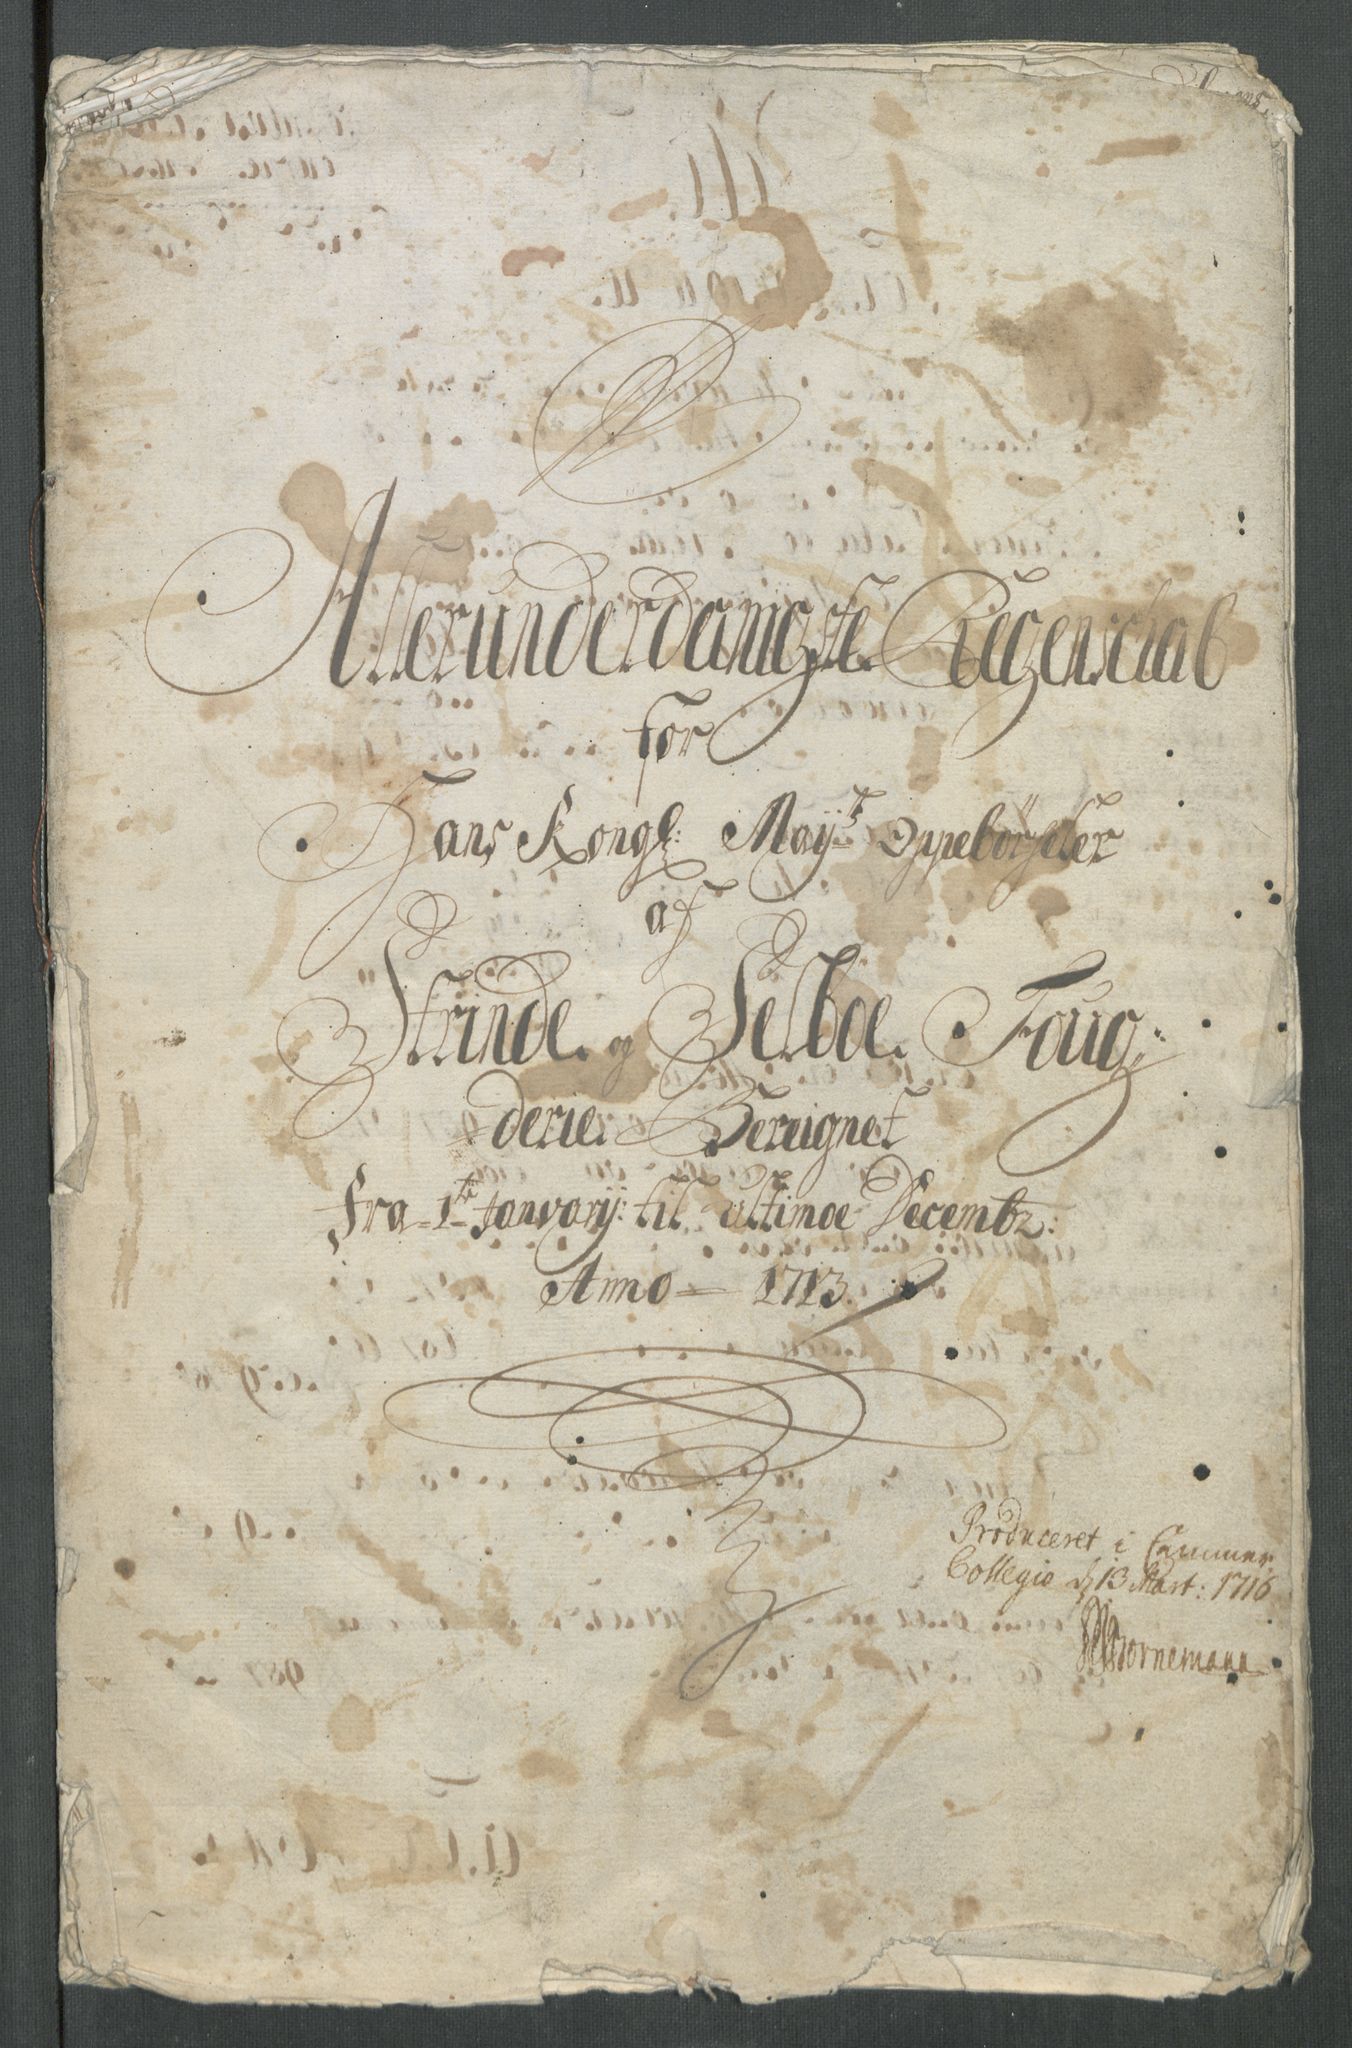 Allerunderdanigste Regenschab
for
Hans Kongl: Mayts Oppebörseler
af
Strinde og Selboe Foug:
derie Bereignet
fra 1ste Janvarij til ultimoe Decembr:
Anno 1713
Produceret i Cammer
Collegio d 13 Mart: 1716
Bornemann